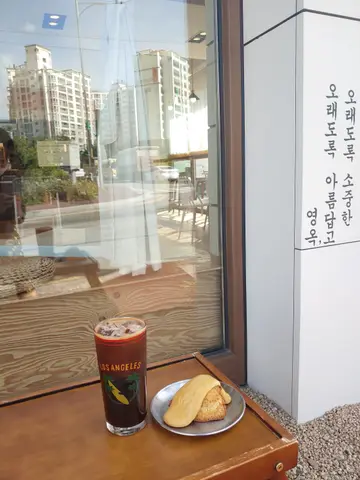 영옥,
오래도록 아름답고
오래도록 소중한
LOS ANGELES